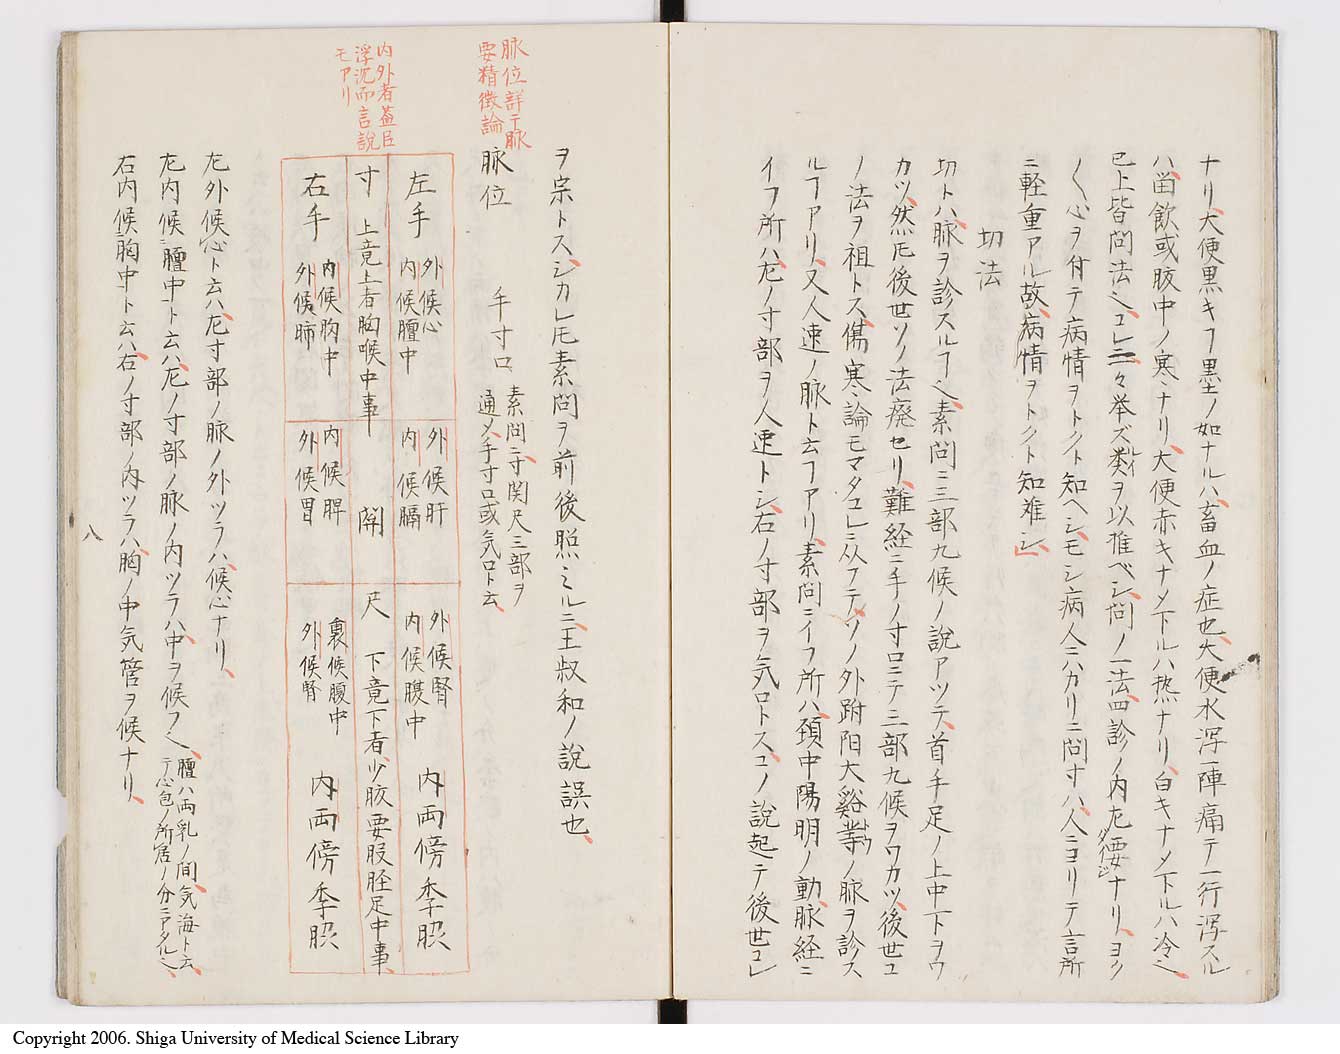 ナリ、大便黒キヿ墨ノ如ナルハ、畜血ノ症也、大便水瀉一陣痛テ一行瀉スル
ハ畄飲或腹中ノ寒ナリ、大便赤キナメ下ルハ热ナリ、白キナメ下ルハ冷也、
已上皆問法也、コレ一々挙ズ、类ヲ以推ベシ、問ノ一法、四診ノ内尤要ナリ、ヨク
〱心ヲ付テ病情ヲトクト知ヘシ、モシ病人ニハカリニ問寸ハ、人ニヨリテ言所
ニ軽重アル故、病情ヲトクト知难シ、
切法
切トハ、脉ヲ診スルヿ也、素問ニ三部九候ノ説アツテ、首手足ノ上中下ヲワ
カツ、然𪜈後世ソノ法廃セリ、難経ニ手ノ寸口ニテ三部九候ヲワカツ、後世コ
ノ法ヲ祖トス、傷寒論モマタコレニ从フテ、ソノ外跗阳大谿等ノ脉ヲ診ス
ルヿアリ、又人迎ノ脉ト云ヿアリ、素問ニイフ所ハ、頚中陽明ノ動脉、経ニ
イフ所ハ、左ノ寸部ヲ人迎トシ、右ノ寸部ヲ気口トス、コノ説起テ後世コレ
ヲ宗トス、シカレ𪜈素問ヲ前後照シミルニ、王叔和ノ説誤也、
脉位詳テ脉
要精微論
脉位 手寸口
素問ニ寸関尺三部ヲ
通メ手寸口或気口ト云、
内外者盖臣
浮沉而言説
モアリ
左手
外候心
内候膻中
外候肝
内候膈
外候腎
内候腹中
内両傍季肋
寸
上竟上者胸喉中事
関
尺
下竟下者、少腹要股胫足中事、
右手
内候胸中
外候肺
内候脾
外候胃
裏候腹中
外候腎
内両傍季肋
左外候心ト云ハ、左寸部ノ脉ノ外ツラハ、候心ナリ、
左内候膻中ト云ハ、左ノ寸部ノ脉ノ内ツラハ、中ヲ候フ也、
膻ハ両乳ノ間、気海ト云
テ心包ノ所居ノ分ニアタル也、
右内候胸中ト云ハ、右ノ寸部ノ内ツラハ、胸ノ中気管ヲ候ナリ、
八
Copyright 2006. Shiga University of Medical Science Library